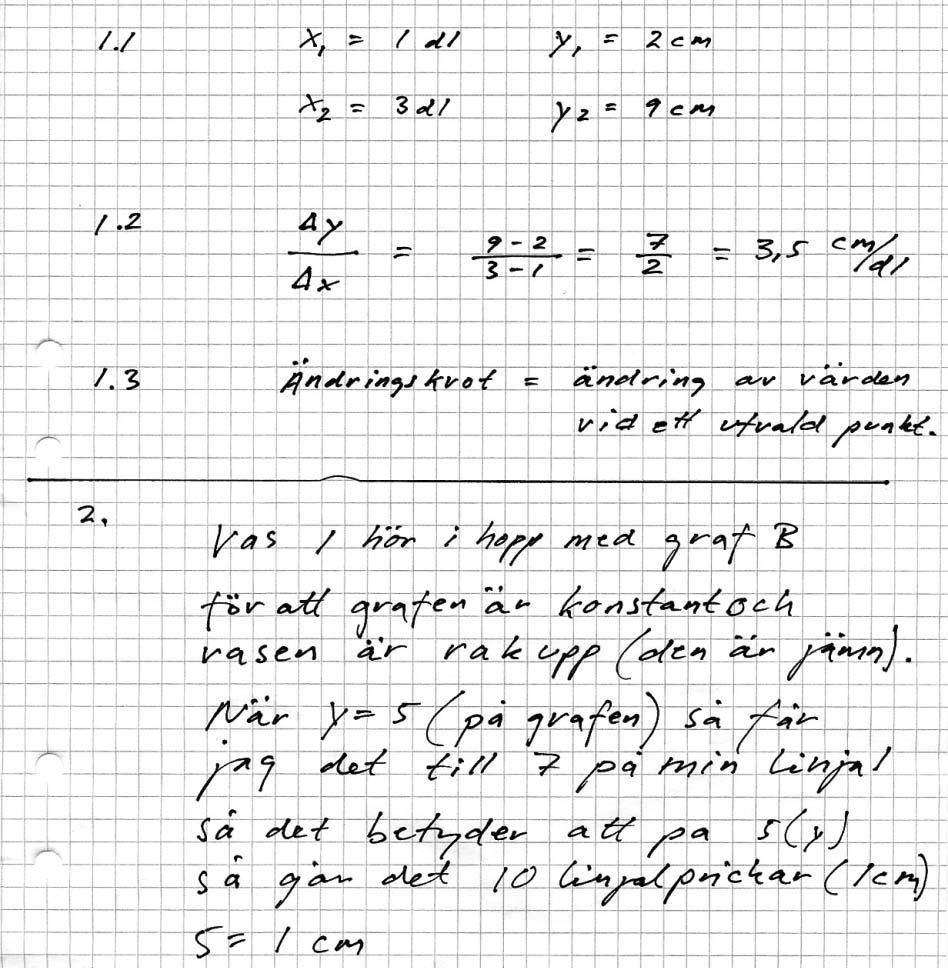 1.1 x₁ = 1 dl y₁ = 2 cm
x₂ = 3 dl y₂ = 9 cm
1.2 Δy/Δx = (9-2)/(3-1) = 7/2 = 3,5 cm/dl
1.3 Ändringskvot = ändring av värden
vid ett utvald punkt.
2.
Vas 1 hör i hopp med graf B
för att grafen är konstant och
vasen är rak upp (den är jämn).
När y = 5 (på grafen) så får
jag det till 7 på min linjal
så det betyder att pa 5(y)
så går det 10 linjalprickar (1cm)
5 = 1 cm